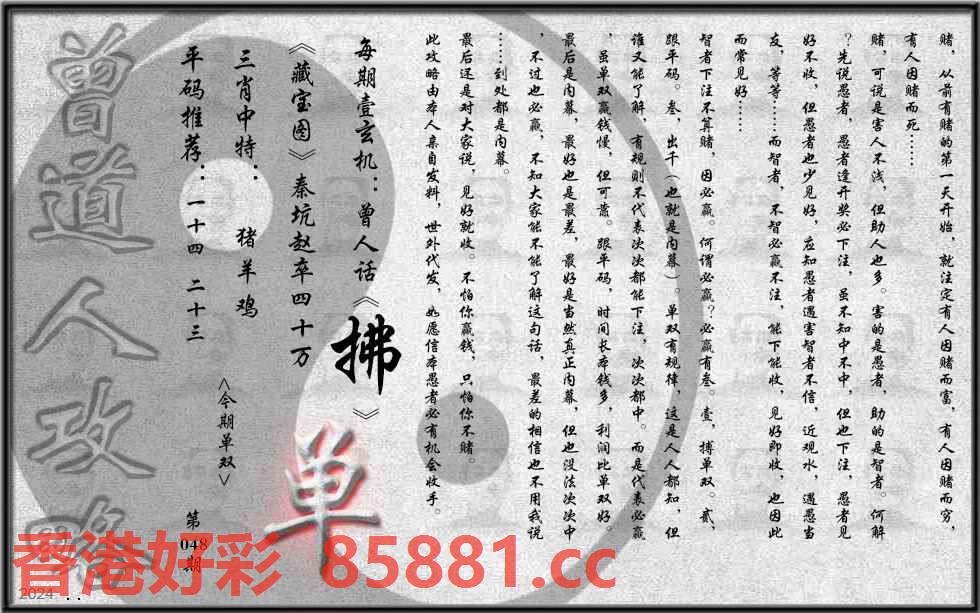 赌，从前有赌的第一天开始，就注定有人因赌而富，有人因赌而穷，
有人因赌而死……
赌，可说是害人不浅，但助人也多。害的是愚者，助的是智者。何解
？先说愚者，愚者逢开奖必下注，虽不知中不中，但也下注，愚者见
好不收，但愚者也少见好，应知愚者遇害智者不信，近观水，遇愚当
友，等等……而智者，不智必赢不注，能下能收，见好即收，也因此
而常见好……
智者下注不算赌，因必赢。何谓必赢？必赢有叁。壹，搏单双。贰，
跟平码。叁，出千（也就是内幕）。单双有规律，这是人人都知，但
谁又能了解，有规则不代表次次都能下注，次次都中。而是代表必赢
，虽单双赢钱慢，但可靠。跟平码，时间长本钱多，利润比单双好。
最后是内幕，最好也是最差，最好是当然真正内幕，但也没法次次中
，不过也必赢，不知大家能不能了解这句话，最差的相信也不用我说
……到处都是内幕。
最后还是对大家说，见好就收。不怕你赢钱，只怕你不赌。
此攻略由本人亲自发料，世外代发，如愿信本愚者必有机会收手。
每期壹玄机：曾人话《拂》
《藏宝图》秦坑赵卒四十万
三肖中特：猪羊鸡
<今期单双>
单
平码推荐：一十四 二十三
第048期
曾道人攻略
香港好彩 85881.cc
2024